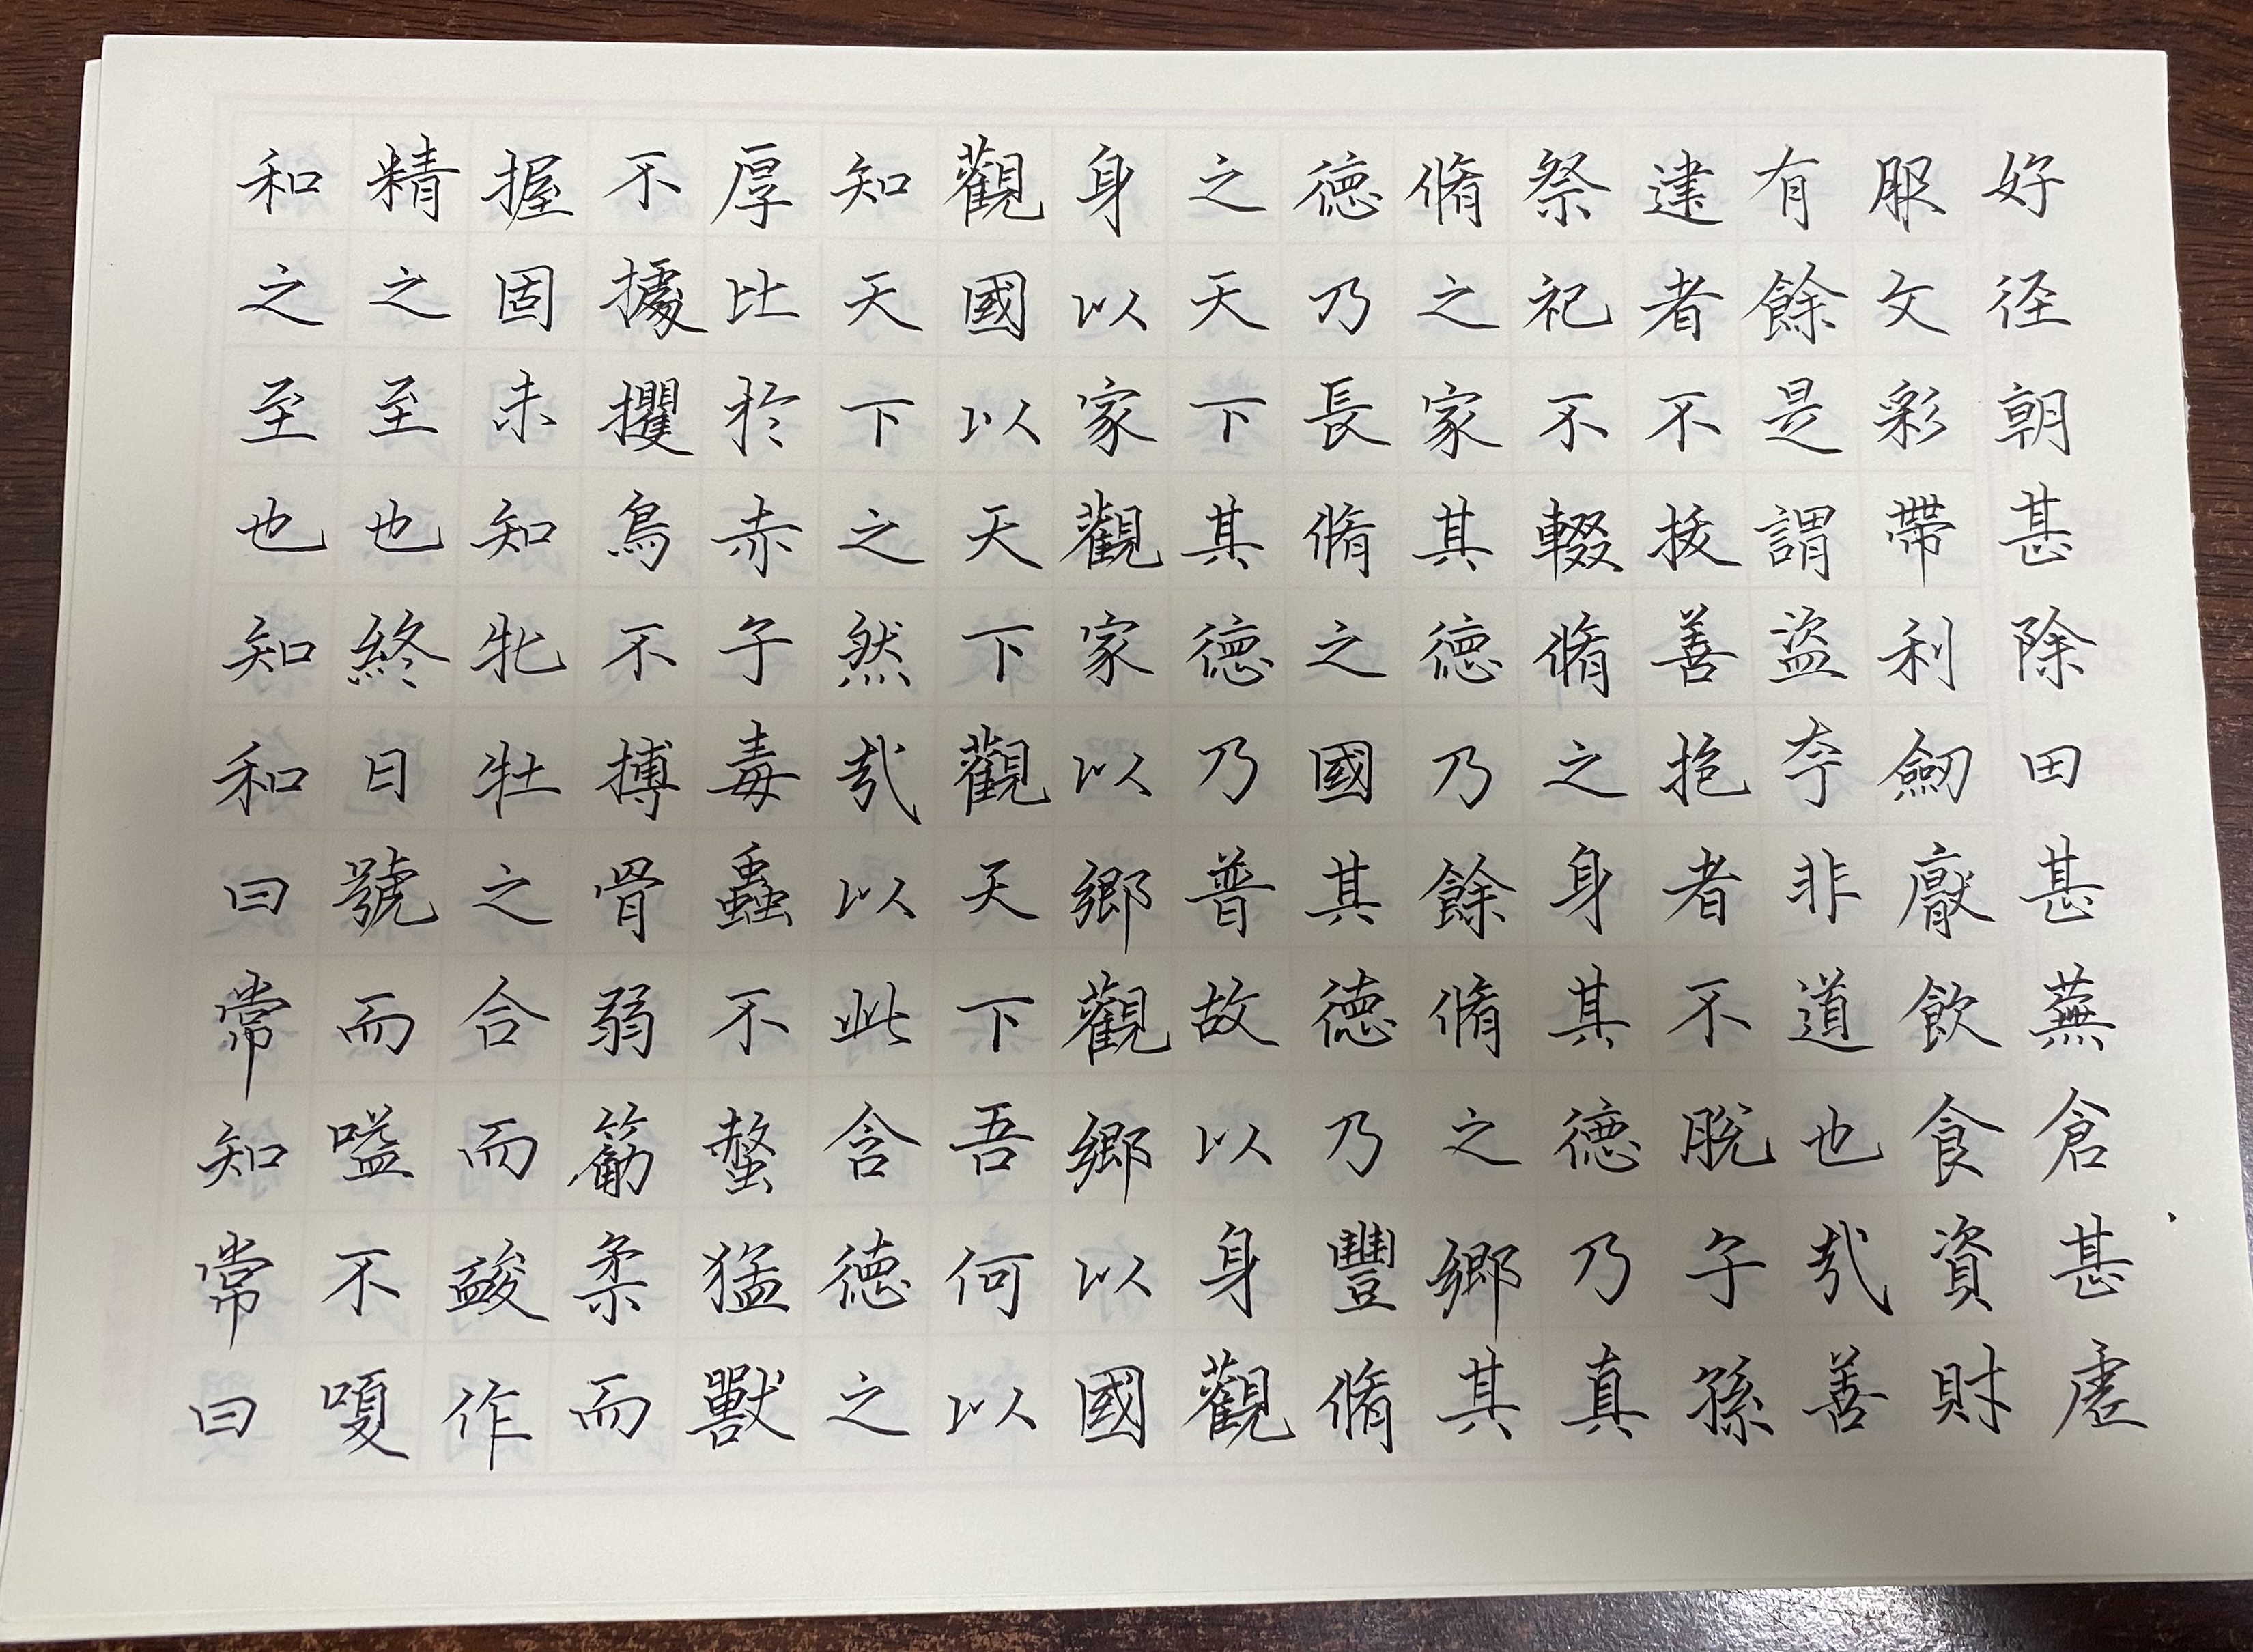 好径朝甚除田甚蕪倉甚虛
服文彩帶利劒厭飲食資財
有餘是謂盜夸非道也哉善
建者不拔善抱者不脫子孫
祭祀不輟脩之身其德乃真
脩之家其德乃餘脩之鄉其
德乃長脩之國其德乃豐脩
之天下其德乃普故以身觀
身以家觀家以鄉觀鄉以國
觀國以天下觀天下吾何以
知天下之然哉以此含德之
厚比於赤子毒蟲不螫猛獸
不據攫鳥不搏骨弱筋柔而
握固未知牝牡之合而䘒作
精之至也終日號而嗌不嗄
和之至也知和曰常知常曰